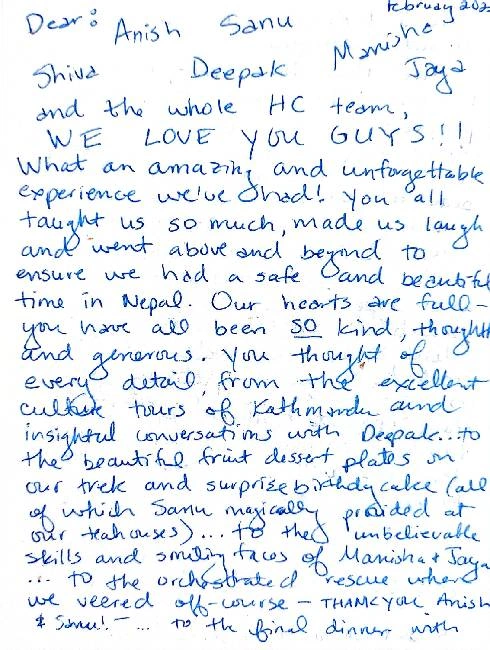 February 202
Dear: Anish Sanu Manisha
Shiva Deepak Jaya
and the whole HC team,
WE LOVE YOU GUYS!!
What an amazing and unforgettable
experience we've had! You all
taught us so much, made us laugh
and went above and beyond to
ensure we had a safe and beautiful
time in Nepal. Our hearts are full -
you have all been so kind, thoughtf
and generous. You thought of
every detail, from the excellent
culture tours of Kathmandu and
insightful conversations with Deepak...to
the beautiful fruit dessert plates on
our trek and surprise birthday cake (all
of which Sanu magically provided at
our teahouses)... to the unbelievable
skills and smiling faces of Manisha & Jaya
... to the orchestrated rescue when
we veered off-course - THANK YOU Anish
& Sanu! - ... to the final dinner with